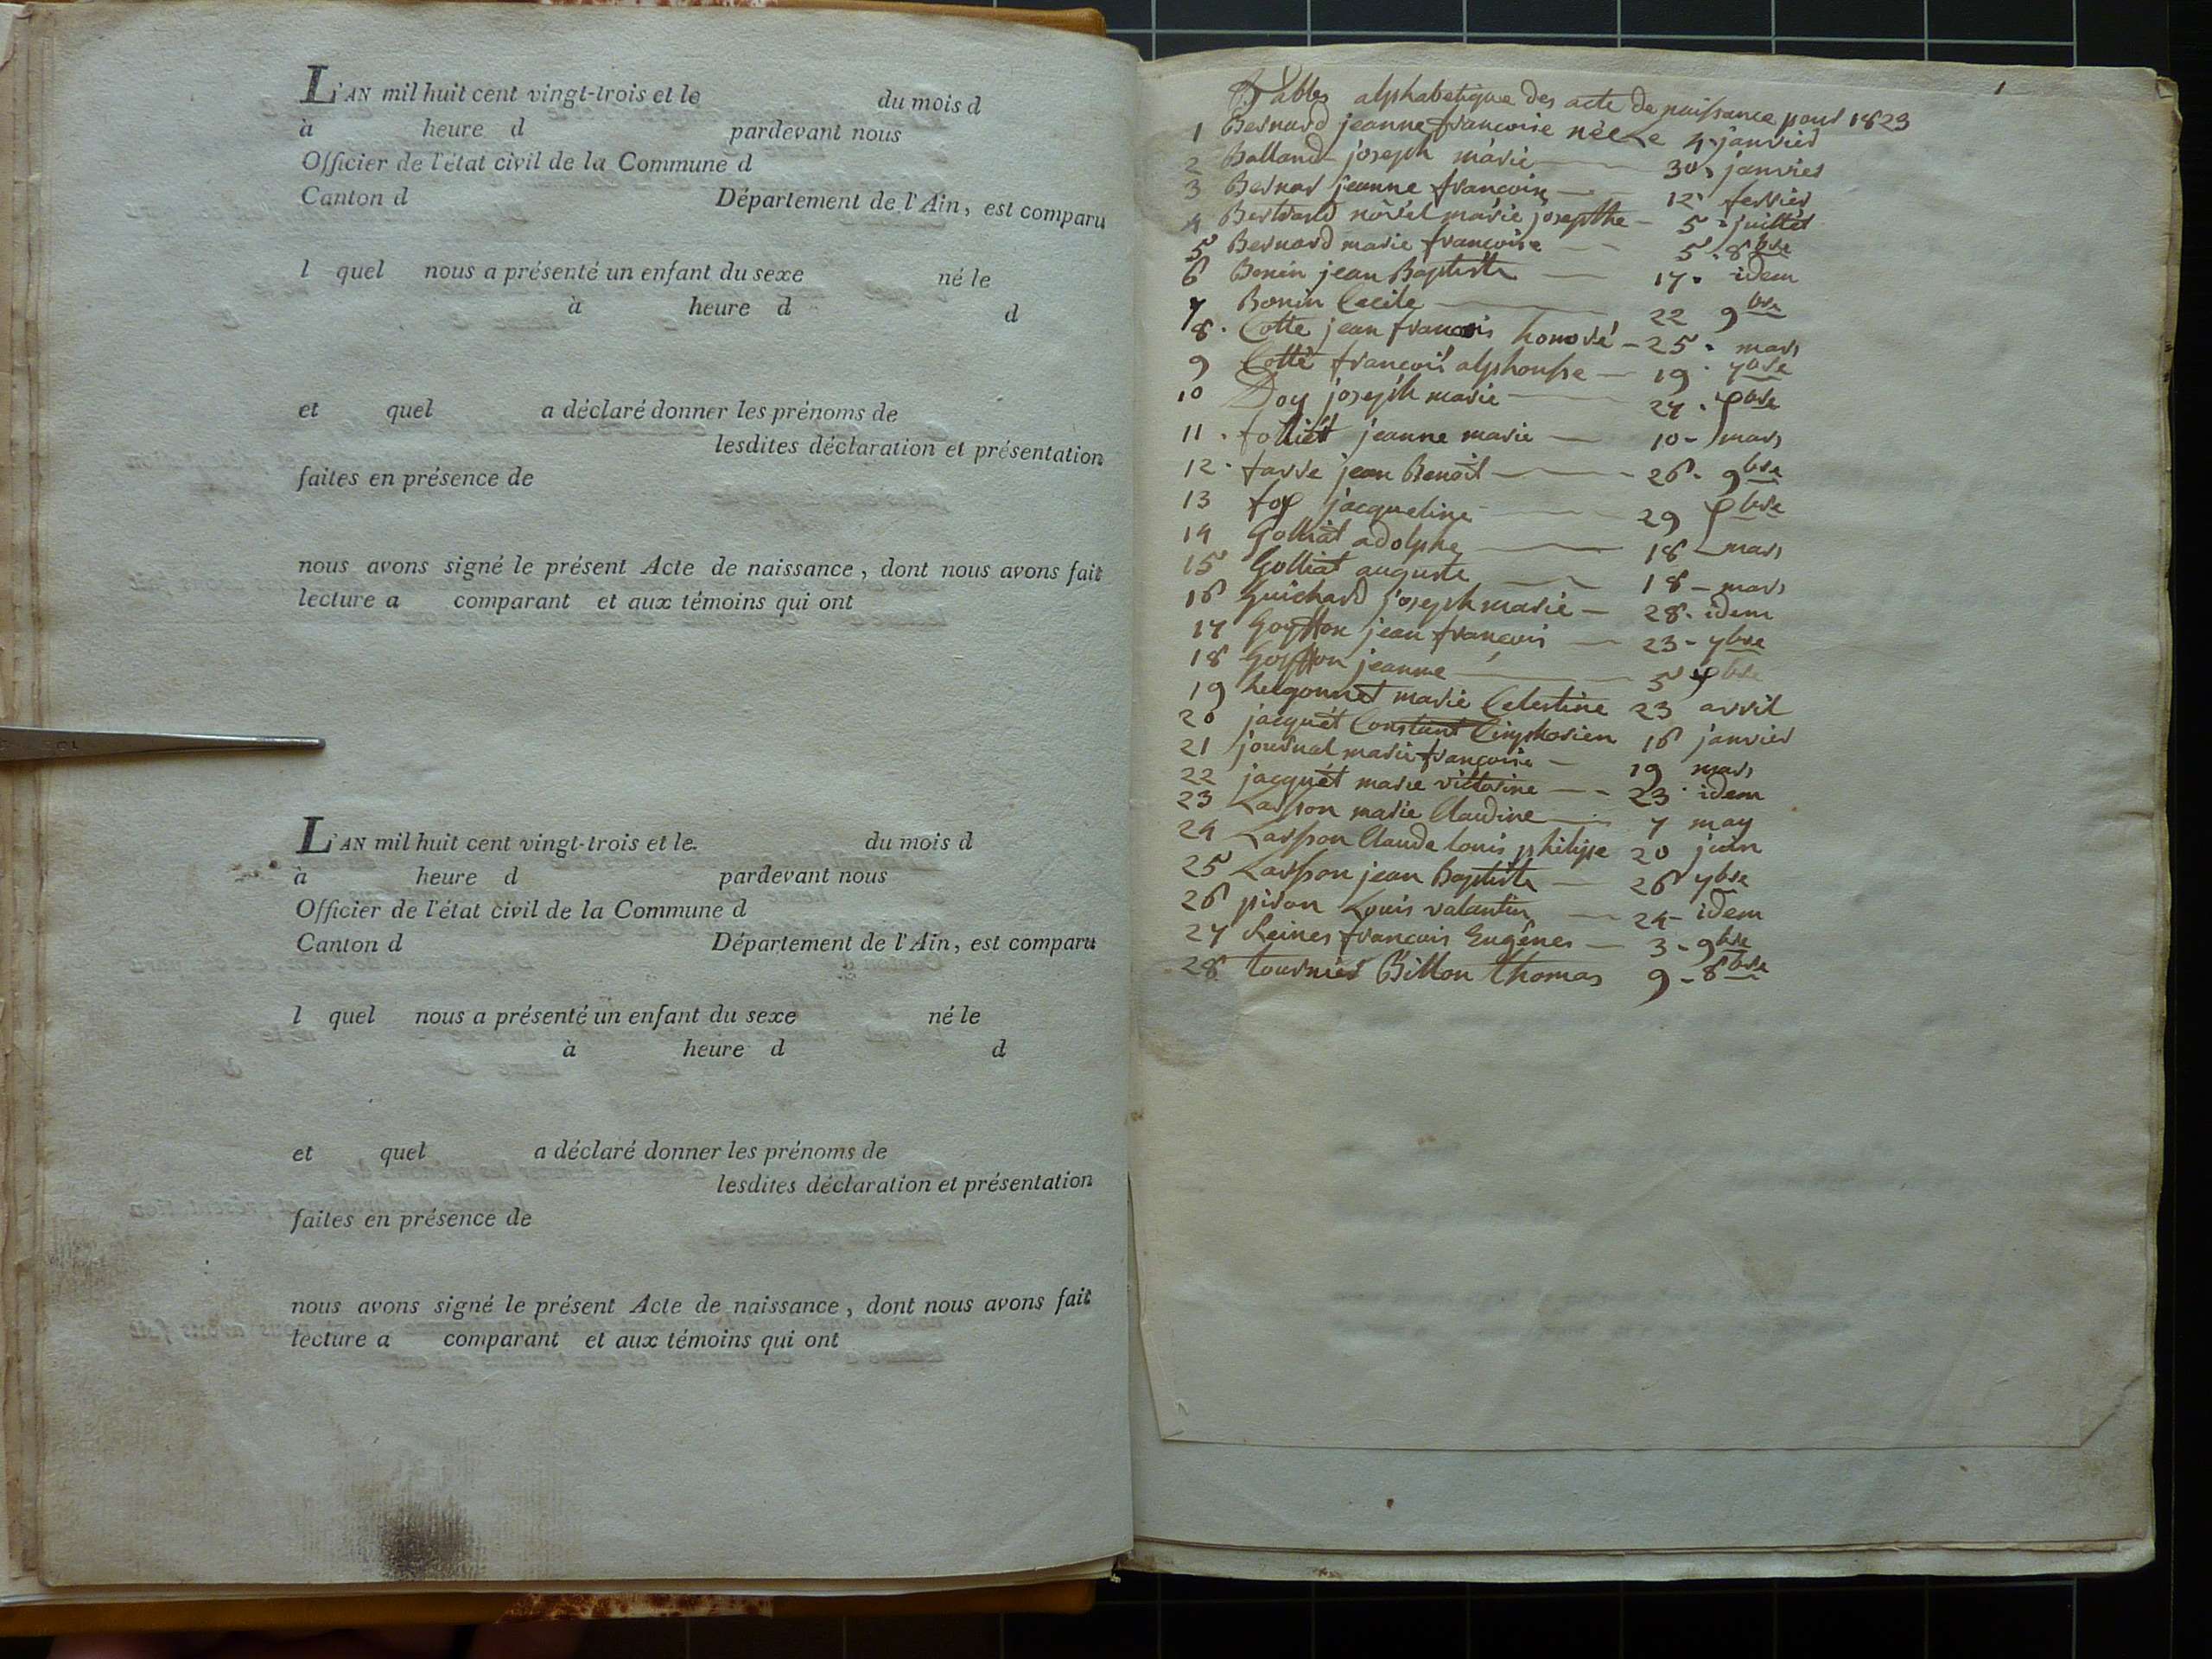 L'AN mil huit cent vingt-trois et le du mois d
à heure d pardevant nous
Officier de l'état civil de la Commune d
Canton d Département de l'Ain, est comparu
l quel nous a présenté un enfant du sexe né le
à heure d d
et quel a déclaré donner les prénoms de
lesdites déclaration et présentation
faites en présence de
nous avons signé le présent Acte de naissance, dont nous avons fait
lecture a comparant et aux témoins qui ont
L'AN mil huit cent vingt-trois et le. du mois d
à heure d pardevant nous
Officier de l'état civil de la Commune d
Canton d Département de l'Ain, est comparu
l quel nous a présenté un enfant du sexe né le
à heure d d
et quel a déclaré donner les prénoms de
lesdites déclaration et présentation
faites en présence de
nous avons signé le présent Acte de naissance, dont nous avons fait
lecture a comparant et aux témoins qui ont
1
Tables alphabetique des acte de naissance pour 1823
1 Bernard jeanne francoise née Le 4 janvier
2 Balland joseph marie 30 janvier
3 Bernar jeanne francoise 12 fevrier
4 Bertrand nöel marie josepthe 5 juillet
5 Bernard marie francoise 5 8bre
6 Bonin jean Baptiste 17 idem
7 Bonin Cecile 22 9bre
8 Cotte jean francois honoré 25 mars
9 Cotte francois alphonse 19 7bre
10 Doy joseph marie 27 Xbre
11 folliet jeanne marie 10 mars
12 favre jean Benoit 26 9bre
13 jacqueline 29 Xbre
14 Golliat adolphe 18 mars
15 Golliat auguste 18 mars
16 Guichard joseph marie 28 idem
17 Goyffon jean francois 23 7bre
18 Goyffon jeanne 5 Xbre
19 hugonnet marie Celestine 23 avril
20 jacquet Constant Cinphorien 16 janvier
21 journal marie françoise 19 mars
22 jacquet marie victorine 23 idem
23 Lasson marie Claudine 7 may
24 Lasson Claude louis philippe 20 juin
25 Lasson jean Baptiste 26 7bre
26 piron Louis valantin 24 idem
27 Reines francois Eugênes 3 9bre
28 tournier Billon thomas 9 8bre